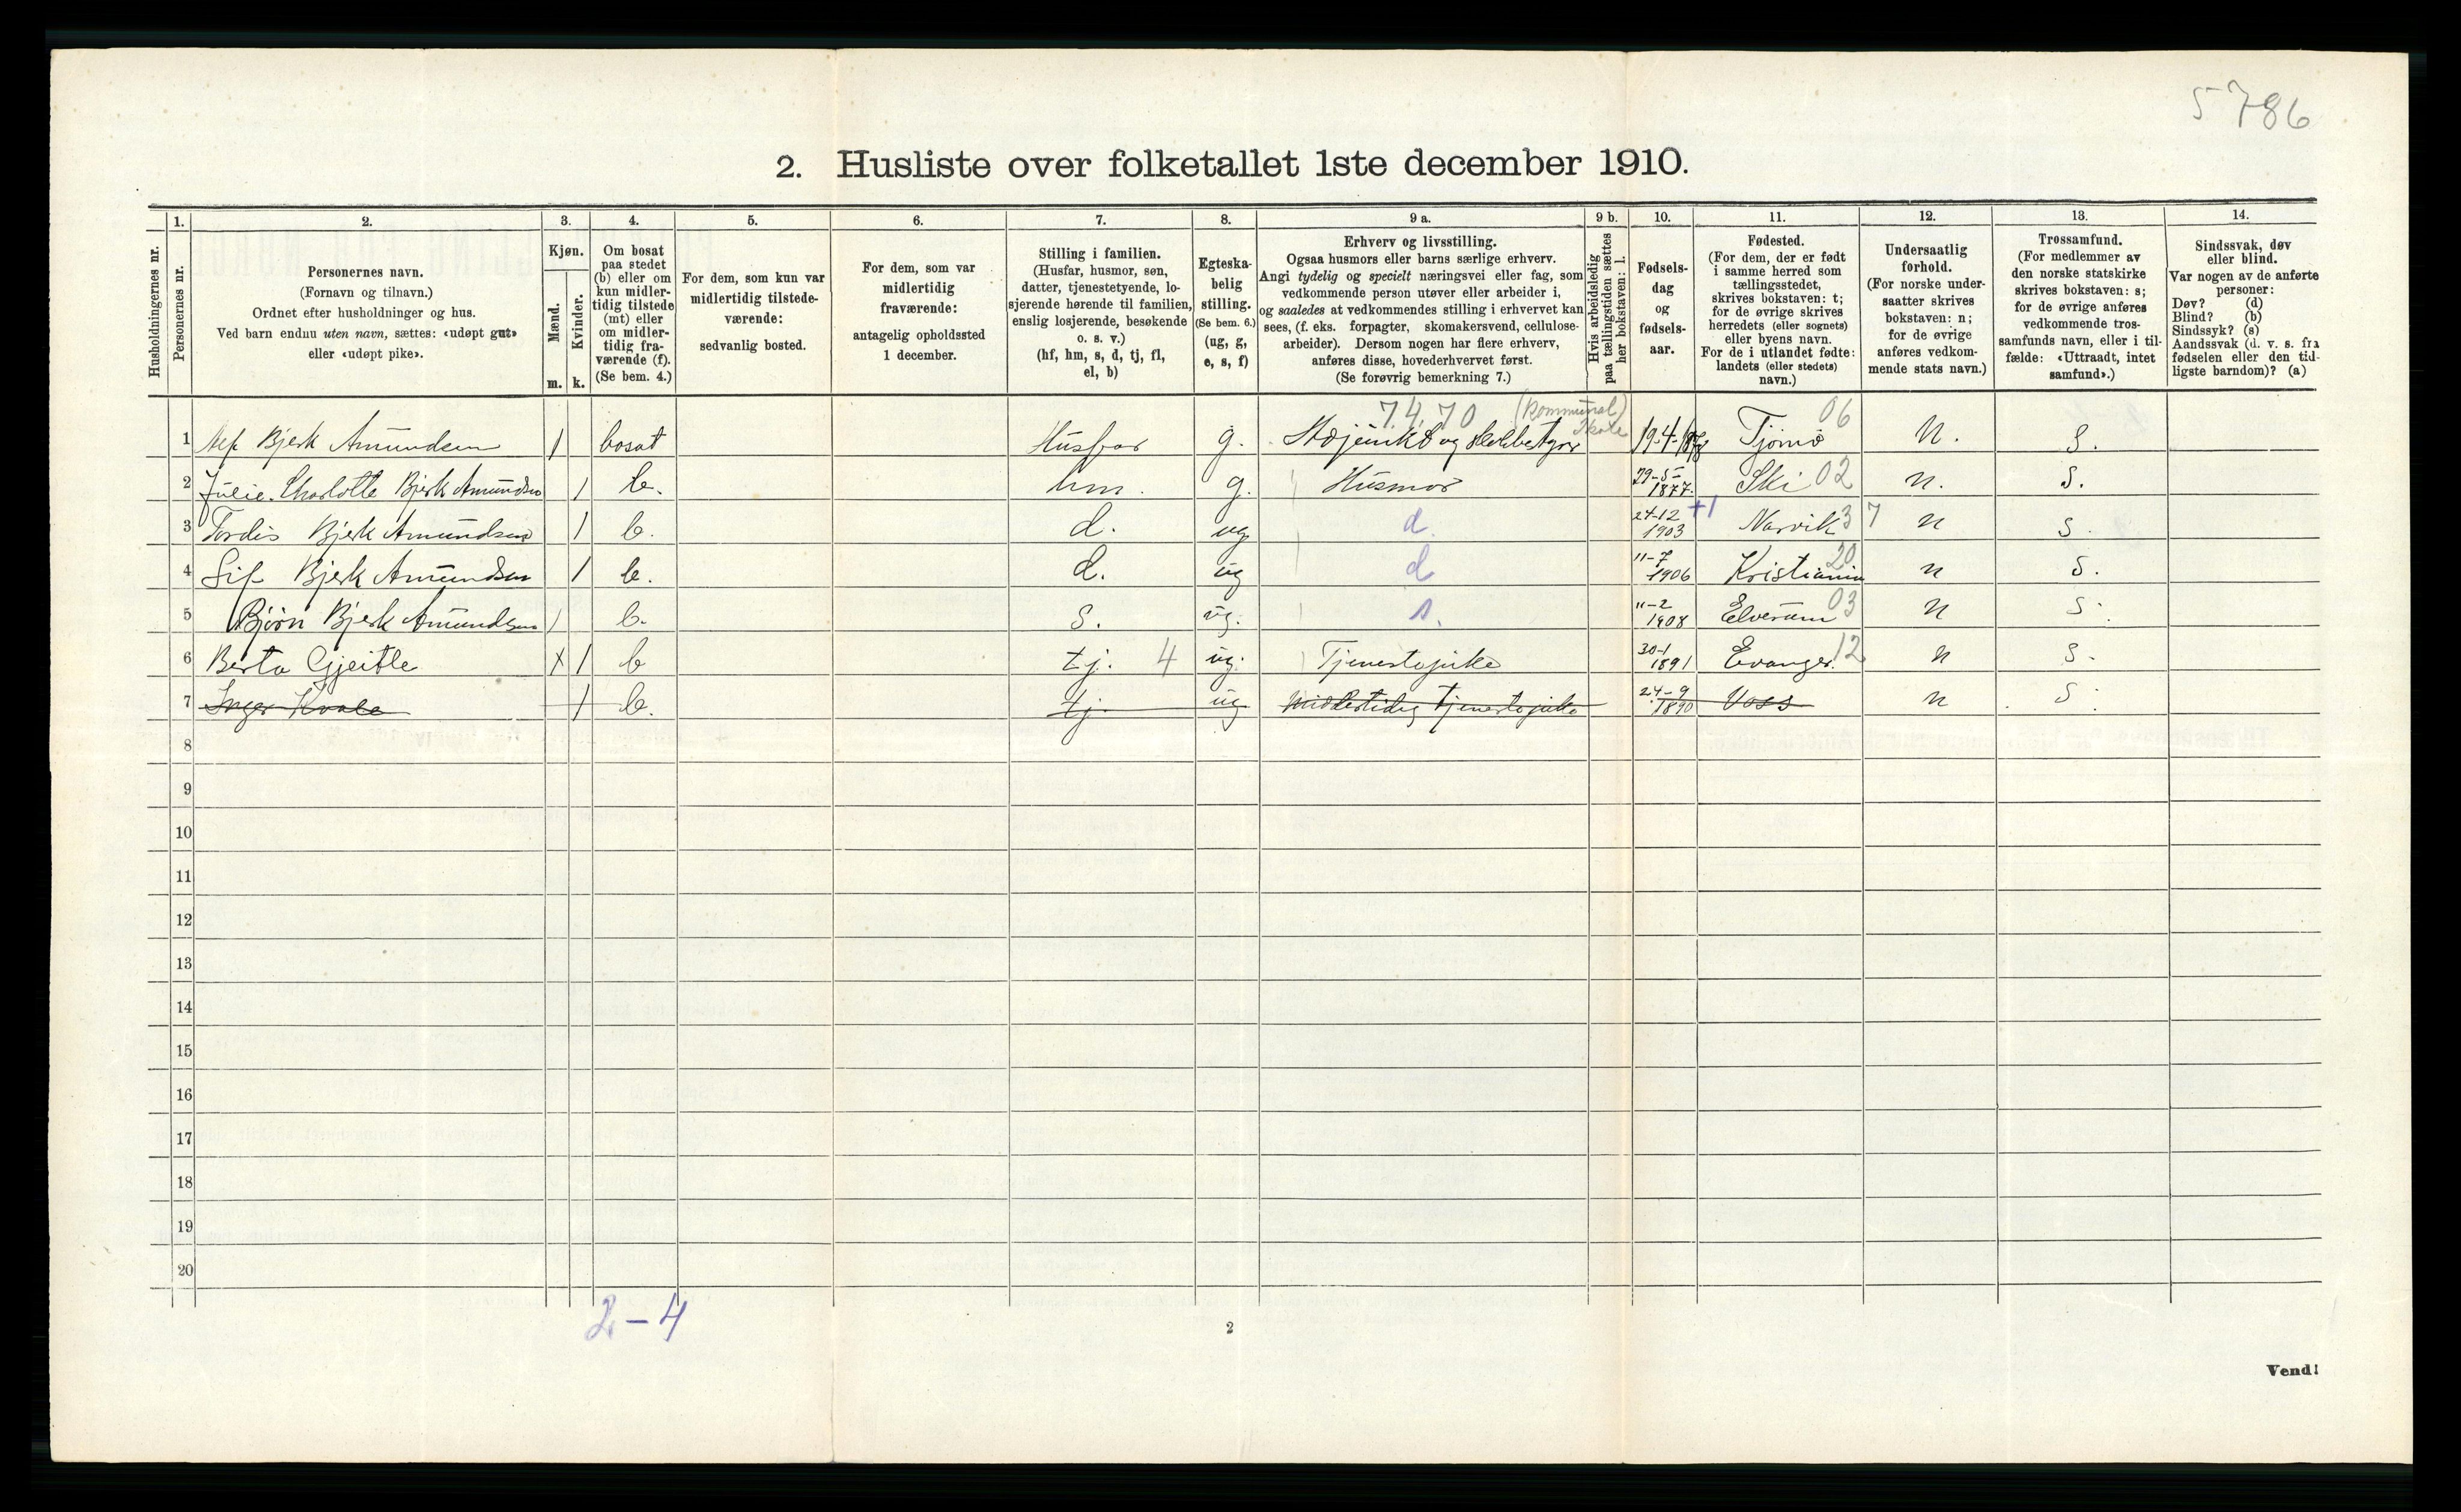 5786
2. Husliste over folketallet 1ste december 1910.
Husholdningernes nr.
1.
Personernes nr.
2.
Personernes navn.
(Fornavn og tilnavn.)
Ordnet efter husholdninger og hus.
Ved barn endnu uten navn, sættes: «udøpt gut»
eller «udøpt pike».
3.
Kjøn.
Mænd.
Kvinder.
m. k.
4.
Om bosat
paa stedet
(b) eller om
kun midler-
tidig tilstede
(mt) eller
om midler-
tidig fra-
værende (f).
(Se bem. 4.)
5.
For dem, som kun var
midlertidig tilstede-
værende:
sedvanlig bosted.
6.
For dem, som var
midlertidig
fraværende:
antagelig opholdssted
1 december.
7.
Stilling i familien.
(Husfar, husmor, søn,
datter, tjenestetyende, lo-
sjerende hørende til familien,
enslig losjerende, besøkende
o. s. v.)
(hf, hm, s, d, tj, fl,
el, b)
8.
Egteska-
belig
stilling.
(Se bem. 6.)
(ug, g,
e, s, f)
9 a.
Erhverv og livsstilling.
Ogsaa husmors eller barns særlige erhverv.
Angi tydelig og specielt næringsvei eller fag, som
vedkommende person utøver eller arbeider i,
og saaledes at vedkommendes stilling i erhvervet kan
sees, (f. eks. forpagter, skomakersvend, cellulose-
arbeider). Dersom nogen har flere erhverv,
anføres disse, hovederhvervet først.
(Se forøvrig bemerkning 7.)
9 b.
Hvis arbeidsledig
paa tællingstiden sættes
her bokstaven: l.
10.
Fødsels-
dag
og
fødsels-
aar.
11.
Fødested.
(For dem, der er født
i samme herred som
tællingsstedet,
skrives bokstaven: t;
for de øvrige skrives
herredets (eller sognets)
eller byens navn.
For de i utlandet fødte:
landets (eller stedets)
navn.)
12.
Undersaatlig
forhold.
(For norske under-
saatter skrives
bokstaven: n;
for de øvrige
anføres vedkom-
mende stats navn.)
13.
Trossamfund.
(For medlemmer av
den norske statskirke
skrives bokstaven: s;
for de øvrige anføres
vedkommende tros-
samfunds navn, eller i til-
fælde: «Uttraadt, intet
samfund».)
14.
Sindssvak, døv
eller blind.
Var nogen av de anførte
personer:
Døv? (d)
Blind? (b)
Sindssyk? (s)
Aandssvak (d. v. s. fra
fødselen eller den tid-
ligste barndom)? (a)
7.4.70 (kommunal) Skole 06
1 Bjerk Amundsen 1 bosat Husfar g. og 19-4- Tjømø N. S.
2 Julie Charlotte Bjerk Amundsen 1 b. hm. g. Husmor 29-5-1877. Ski 02 n. S.
3 Tordis Bjerk Amundsen 1 b. d. ug d. 24-12 1903 +1 Narvik 37 n S.
4 Sif Bjerk Amundsen 1 b. d. ug d 11-7 1906 Kristiania 20 n S.
5 Bjørn Bjerk Amundsen 1 b. S. ug. s. 11-2 1908 Elverum 03 n S.
6 Berta Gjeitle X 1 b tj. 4 ug. Tjenestepike 30-1 1891 Evanger. 12 n S.
7 Inger Kvale 1 b. tj. ug Midlertidig Tjenestepike 24-9 1890 Voss n S.
8
9
10
11
12
13
14
15
16
17
18
19
20
2-4
2
Vend!